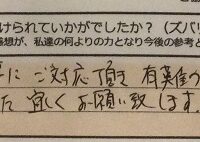 けられていかがでしたか？（ズバリ
感想が、私達の何よりの力となり今後の参考と
にご対応頂き 有難
た 宜しくお願い致します。